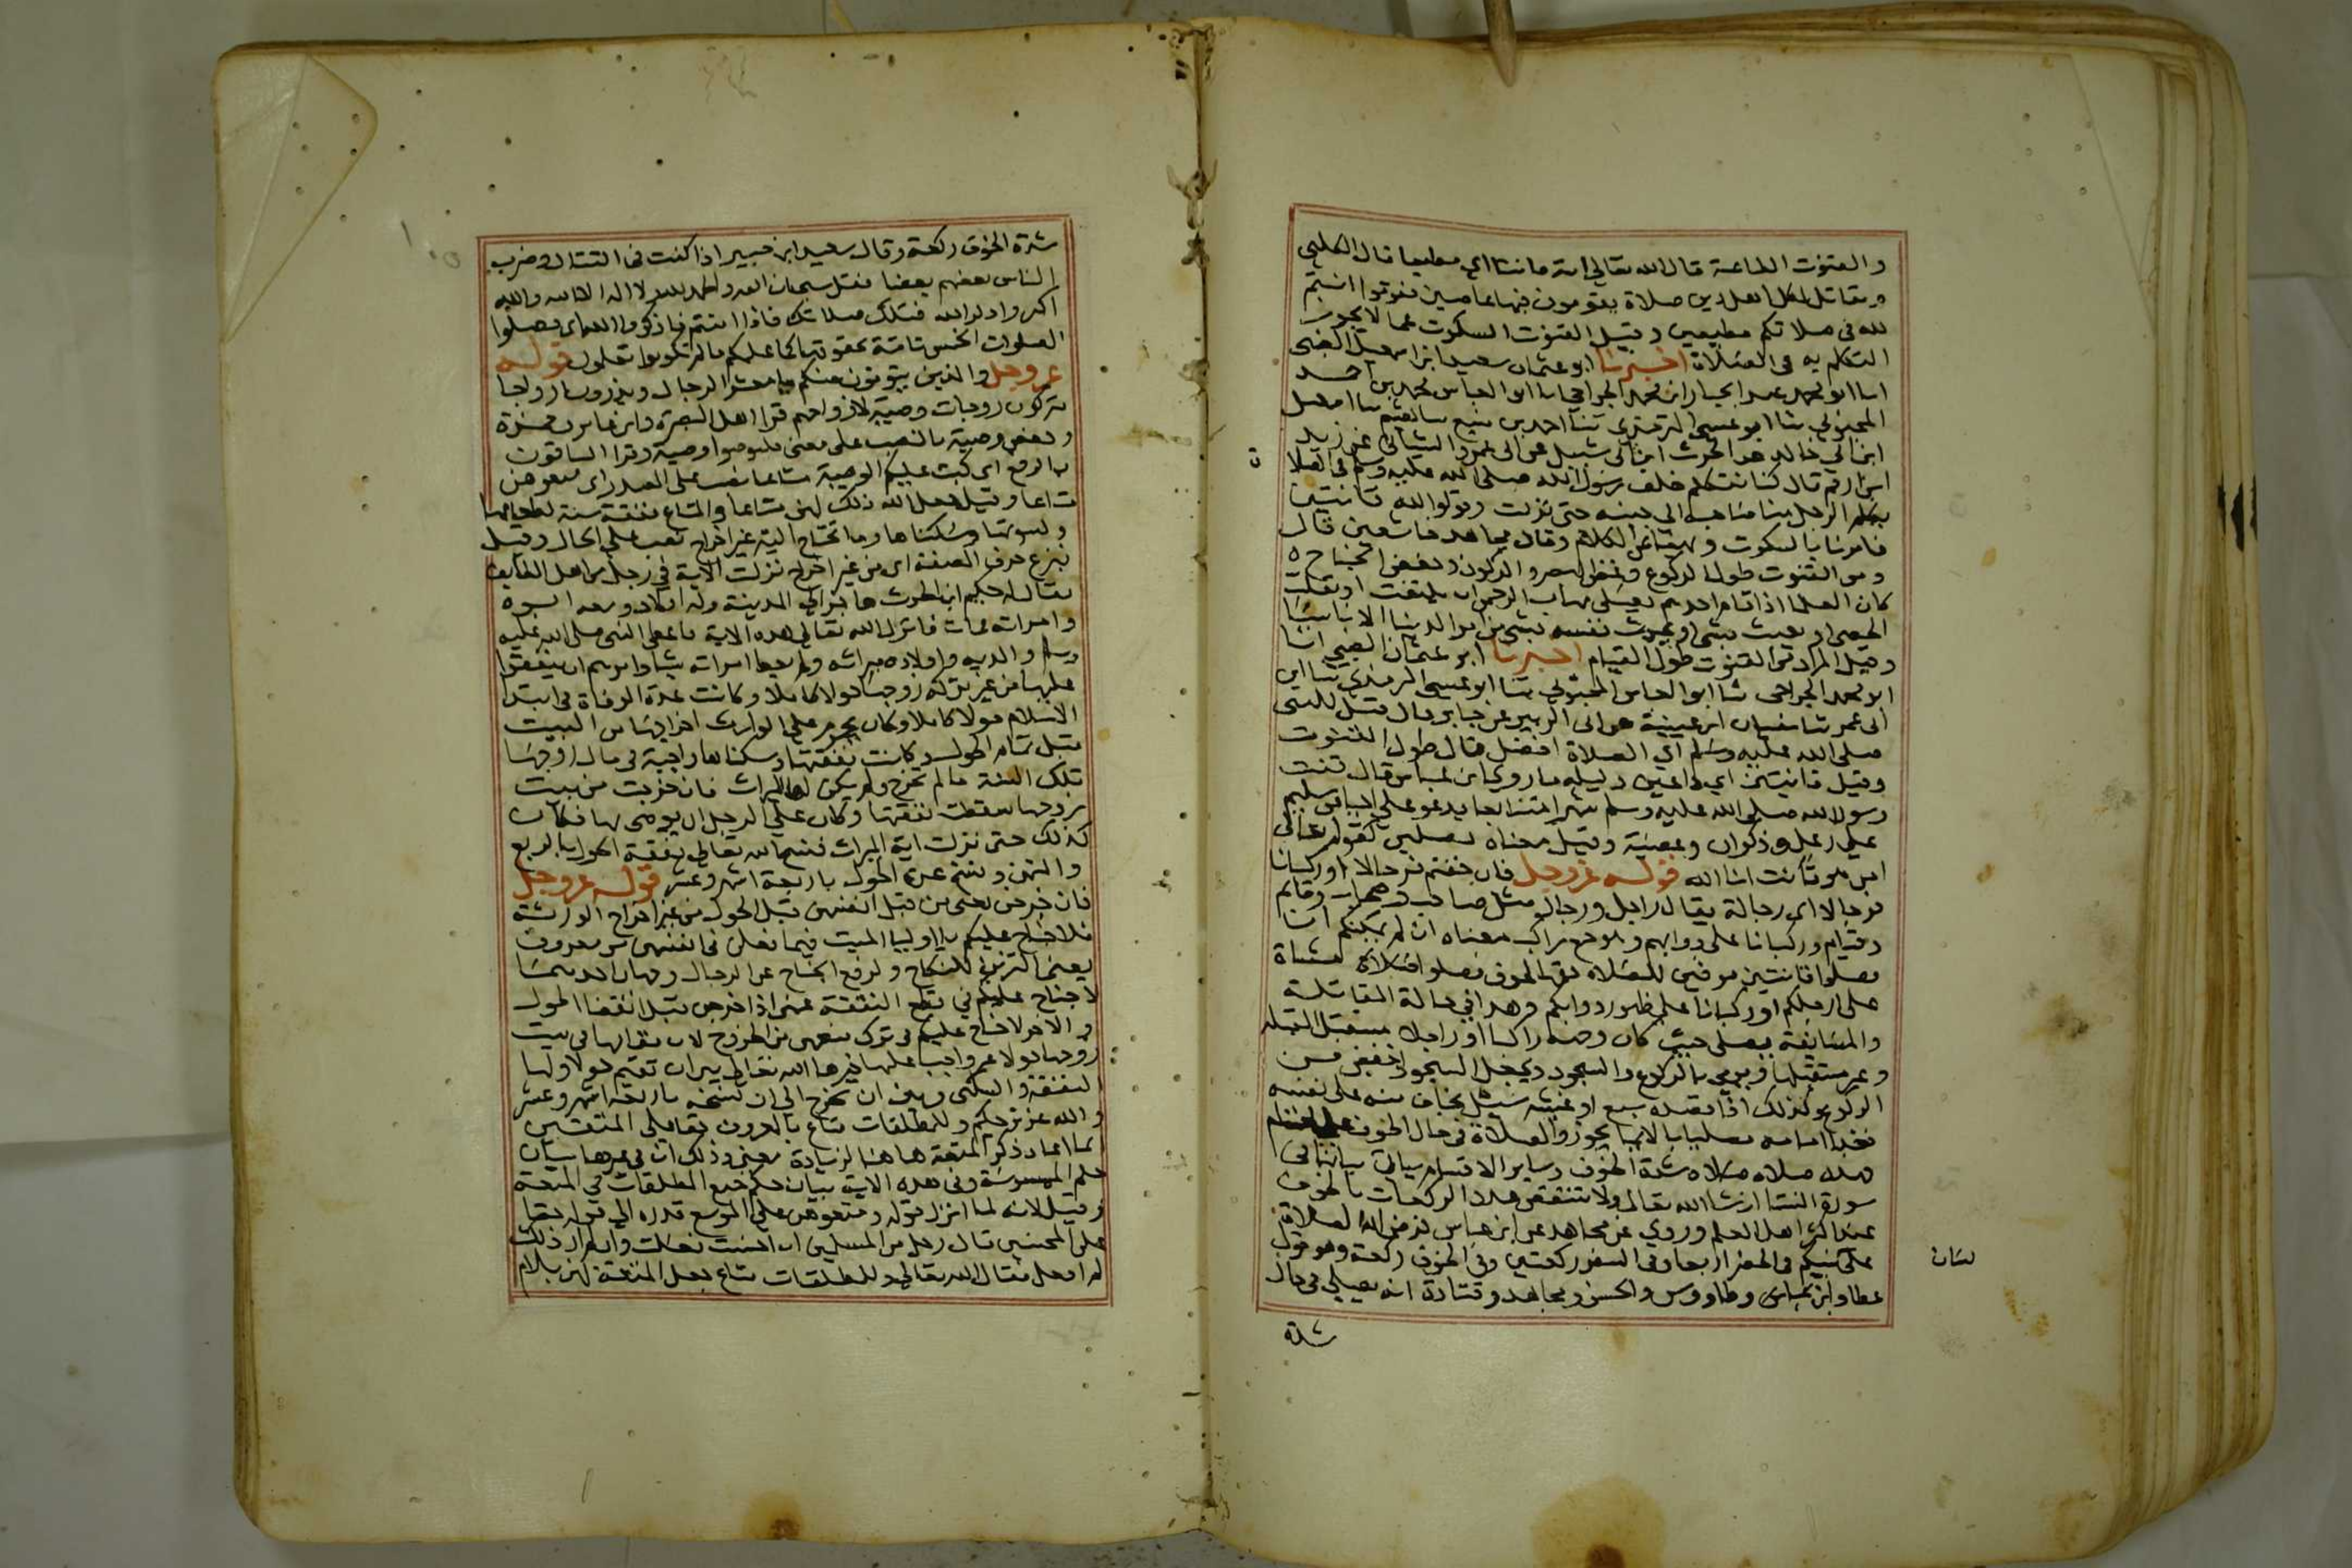 والقنوت الطاعة قال الله تعالى امة قانتا اي مطيعا قال الكلبي
ومقاتل لكل اهل دين صلاة يقومون فيها عاصين فقوموا انتم
لله في صلاتكم مطيعين وقيل القنوت السكوت عما لا يجوز
التكلم به في الصلاة اخبرنا ابو عثمان سعيد ابن اسمعيل الضبي
انا ابو محمد عبد الجبار ابن محمد الجراحي انا ابو العباس محمد بن احمد
المحبوبي ثنا ابو عيسى الترمذي ثنا احمد بن منيع ثنا هشيم ثنا اسمعيل
ابن ابي خالد عن الحرث ابن ابي شبل عن ابي عمرو الشيباني عن زيد
ابن ارقم قال كنا نتكلم خلف رسول الله صلى الله عليه وسلم في الصلا
ة
يكلم الرجل منا صاحبه الى جنبه حتى نزلت وقوموا لله قانتين
فامرنا بالسكوت ونهينا عن الكلام وقال مجاهد خاشعين قال
ومن القنوت طول الركوع وغض البصر والركون وخفض الجناح ه
كان العلما اذا قام احدهم يصلي يهاب الرحمن ان يلتفت او يقلب
الحصى او يعبث بشي او يحدث نفسه بشي من امر الدنيا الا ناسيا
وقيل المراد من القنوت طول القيام اخبرنا ابو عثمان الضبي انا
ابو محمد الجراحي ثنا ابو العباس المحبوبي ثنا ابو عيسى الترمذي ثنا ابن
ابي عمر ثنا سفيان ابن عيينة عن ابي الزبير عن جابر قال قيل للنبي
صلى الله عليه وسلم اي الصلاة افضل قال طول القنوت
وقيل قانتين اي داعين دليله ما روي عن ابن عباس قال قنت
رسول الله صلى الله عليه وسلم شهرا متتابعا يدعو على احيا من سليم
على رعل وذكوان وعصية وقيل معناه مصلين كقوله تعالى
امن هو قانت اناا الله قوله عز وجل فان خفتم فرجالا او ركبانا
فرجالا اي رجالة يقال راجل ورجال مثل صاحب وصحاب وقايم
وقيام وركبانا على دوابهم وهو جمع راكب معناه ان لم يمكنكم ان
تصلوا قانتين موفين للصلاة حقها لخوف فصلوا مشاة
على ارجلكم او ركبانا على ظهور دوابكم وهذا في حالة المقاتلة
والمسايفة يصلي حيث كان وجهه راكبا او راجلا مستقبل القبلة
وغير مستقبلها ويومي بالركوع والسجود ويجعل السجود اخفض من
الركوع وكذلك اذا قصده سبع او غشيه سيل يخاف منه على نفسه
فعدا امامه مصليا بالايما يجوز والصلاة في حال الخوف على اقسام
هذه صلاة شدة الخوف وساير الاقسام سياتي بيانها في
سورة النسا ان شا الله تعالى ولا تنتقص هذا الركعات بالخوف
عند اكثر اهل العلم وروي عن مجاهد عن ابن عباس فرض الله الصلاة
على نبيكم في الحضر اربعا وفي السفر ركعتين وفي الخوف ركعة وهو قول
لسان
عطا وابن عباس وطاووس والحسن ومجاهد وقتادة انه يصلي في حال
شدة
شدة الخوف ركعة وقال سعيد ابن جبير اذا كنت في القتال وضرب
الناس بعضهم بعضا فقل سبحان الله والحمد لله ولا اله الا الله والله
اكبر واذكر الله فتلك صلاتك فاذا امنتم فاذكروا الله اي فصلوا
الصلوات الخمس تامة بحقوقها كما علمكم ما لم تكونوا تعلمون قوله
عز وجل والذين يتوفون منكم يا معشر الرجال ويذرون ازواجا
يتركون زوجات وصية لازواجهم قرا اهل البصرة وابن عامر وحمزة
وحفص وصية بالنصب على معنى فليوصوا وصية وقرا الباقون
بالرفع اي كتب عليكم الوصية متاعا نصب على المصدر اي متعوهن
متاعا وقيل جعل الله ذلك لهن متاعا والمتاع نفقة سنة لطعامها
وكسوتها وسكناها وما تحتاج اليه غير اخراج نصب على الحال وقيل
بنزع حرف الصفة اي من غير اخراج نزلت الاية في رجل من اهل الطايف
يقال له حكيم ابن الحرث هاجر الى المدينة وله اولاد ومعه ابوه
وامراته فمات فانزل الله تعالى هذه الاية فاعطى النبي صلى الله عليه
وسلم والديه واولاده ميراثه ولم يعط امراته شيا وامرهم ان ينفقوا
عليها من غير تركة زوجها حولا كاملا وكانت عدة الوفاة في ابتدا
الاسلام حولا كاملا وكان يحرم على الوارث اخراجها من البيت
قبل تمام الحول وكانت نفقتها وسكناها واجبة في مال زوجها
تلك السنة ما لم تخرج ولم يكن لها الميراث فان خرجت من بيت
زوجها سقطت نفقتها وكان على الرجل ان يوصي بها فكان
كذلك حتى نزلت اية الميراث فنسخ الله تعالى نفقة الحول بالربع
والثمن ونسخ عدة الحول باربعة اشهر وعشر قوله عز وجل
فان خرجن يعني من قبل انفسهن قبل الحول من غير اخراج الورثة
فلا جناح عليكم يا اوليا الميت فيما فعلن في انفسهن من معروف
يعني التزين للنكاح ولرفع الجناح عن الرجال وجهان احدهما
لا جناح عليكم في قطع النفقة عنهن اذا خرجن قبل انقضا الحول
والاخر لا جناح عليكم في ترك منعهن من الخروج لان مقامها في بيت
زوجها حولا غير واجب عليها خيرها الله تعالى بين ان تقيم حولا ولها
النفقة والسكنى وبين ان تخرج الى ان نسخه باربعة اشهر وعشر
والله عزيز حكيم وللمطلقات متاع بالمعروف حقا على المتقين
انما اعاد ذكر المتعة هاهنا لزيادة معنى وذلك ان في غيرها بيان
حكم الممسوسة وفي هذه الاية بيان حكم جميع المطلقات في المتعة
وقيل لانه لما انزل قوله ومتعوهن على الموسع قدره الى قوله حقا
على المحسنين قال رجل من المسلمين ان احسنت فعلت وان لم ارد ذلك
لم افعل فقال الله تعالى وللمطلقات متاع جعل المتعة لهن بلام